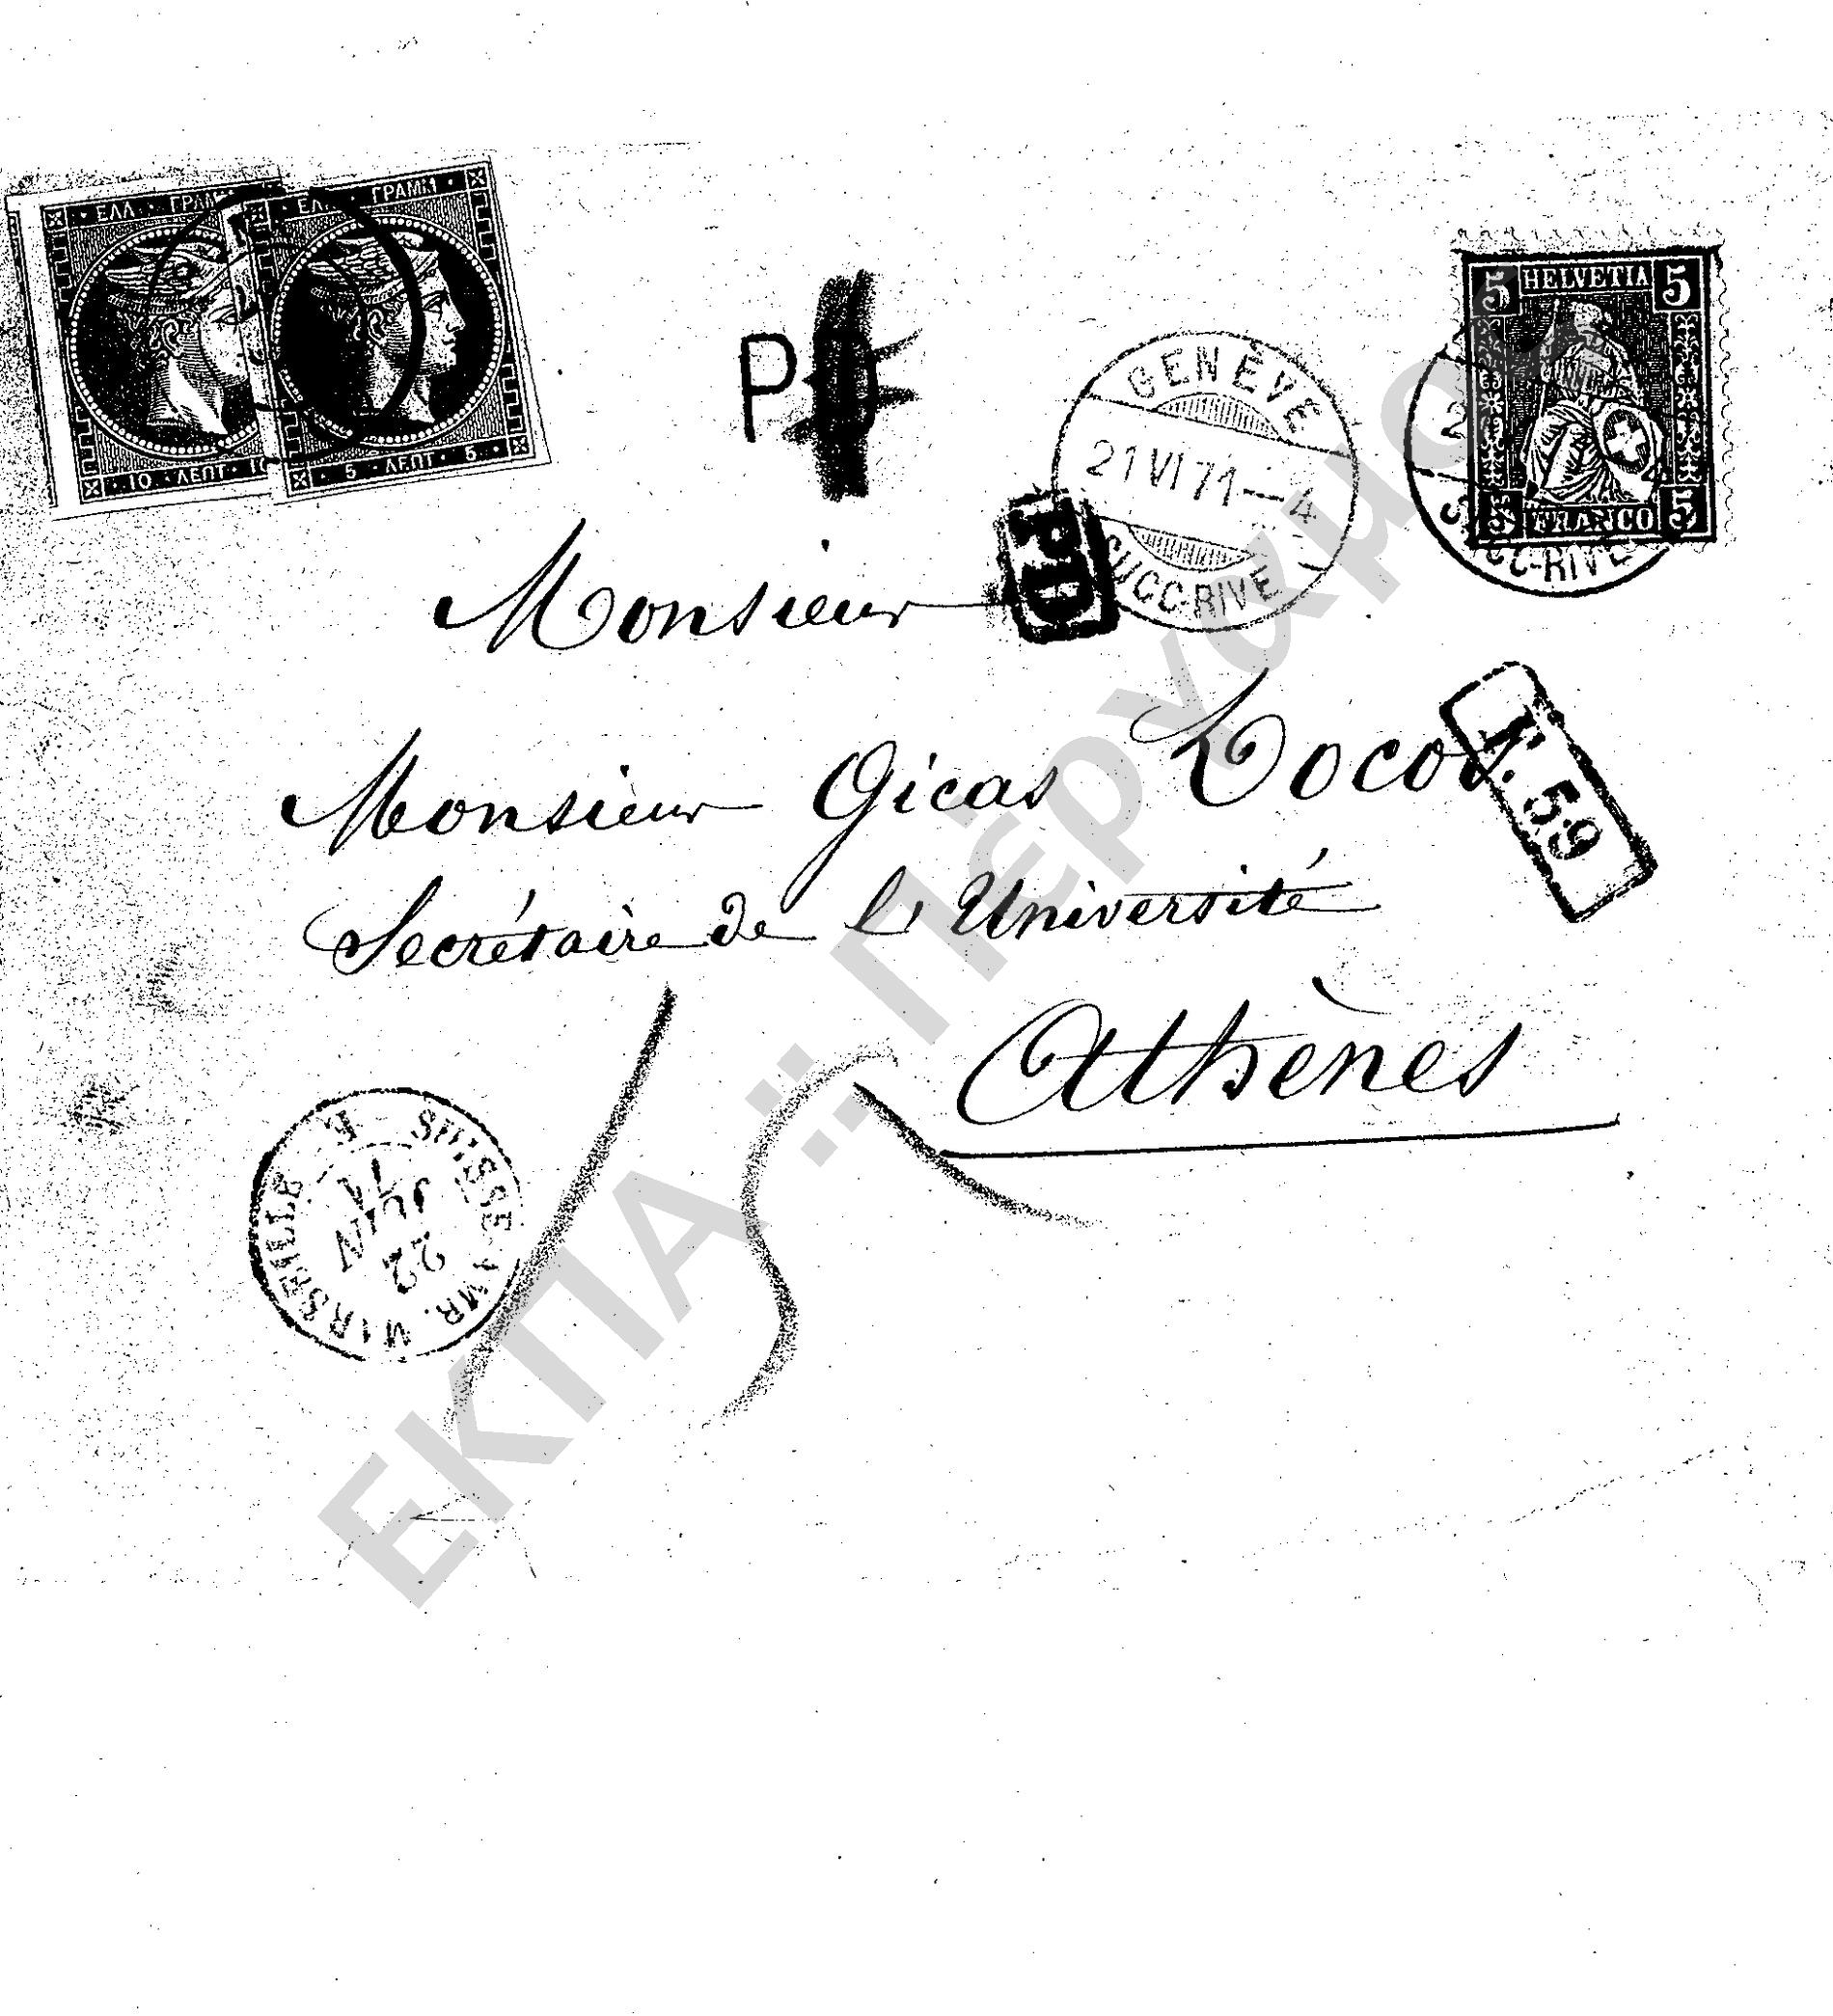 ΕΛΛ · ΓΡΑΜΜ
10 · ΛΕΠΤ · 10
ΕΛΛ · ΓΡΑΜΜ
5 · ΛΕΠΤ · 5
PD
GENÈVE
21 VI 71 — 4
SUCC-RIVE
5 HELVETIA 5
5 FRANCO 5
SUCC-RIVE
PD
Monsieur
Monsieur Gicas Docos
F. 59
Secrétaire de l'Université
Athènes
SUISSE AMB. MARSEILLE
22
JUIN
71
15
ΕΚΠΑ :: Πέργαμος